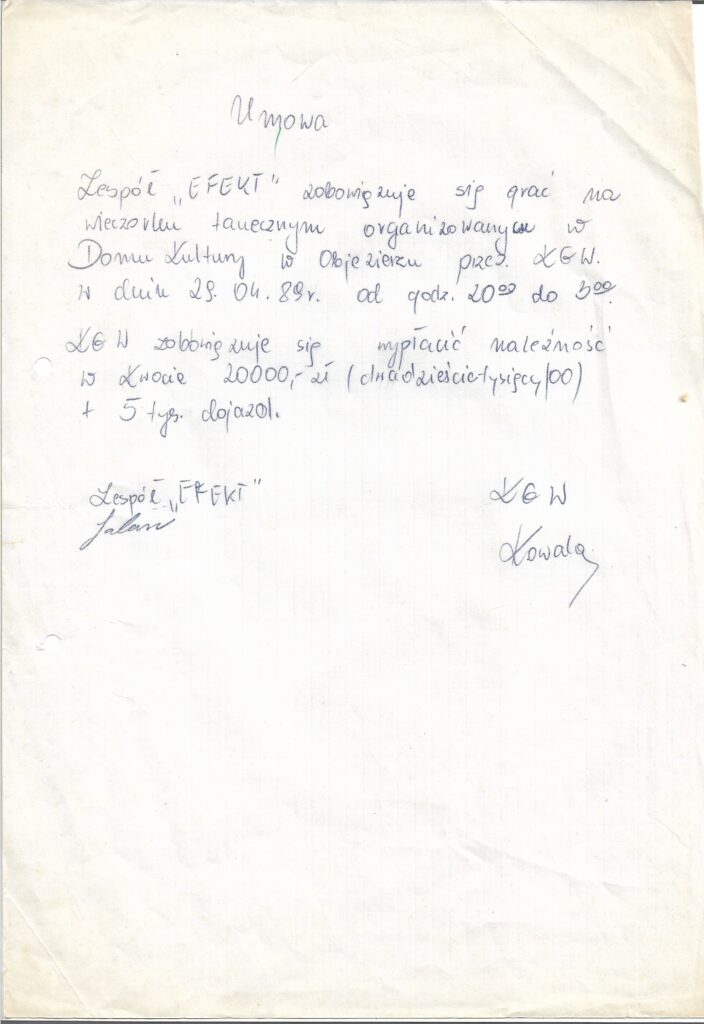 Umowa
Zespół „EFEKT” zobowiązuje się grać na
wieczorku tanecznym organizowanym w
Domu Kultury w Objezierzu przez KGW.
w dniu 29. 04. 89r. od godz. 20⁰⁰ do 3⁰⁰.
KGW zobowiązuje się wypłacić należność
w kwocie 20000,- zł (dwadzieścia tysięcy/00)
+ 5 tys. dojazd.
Zespół „EFEKT” KGW
Kowala